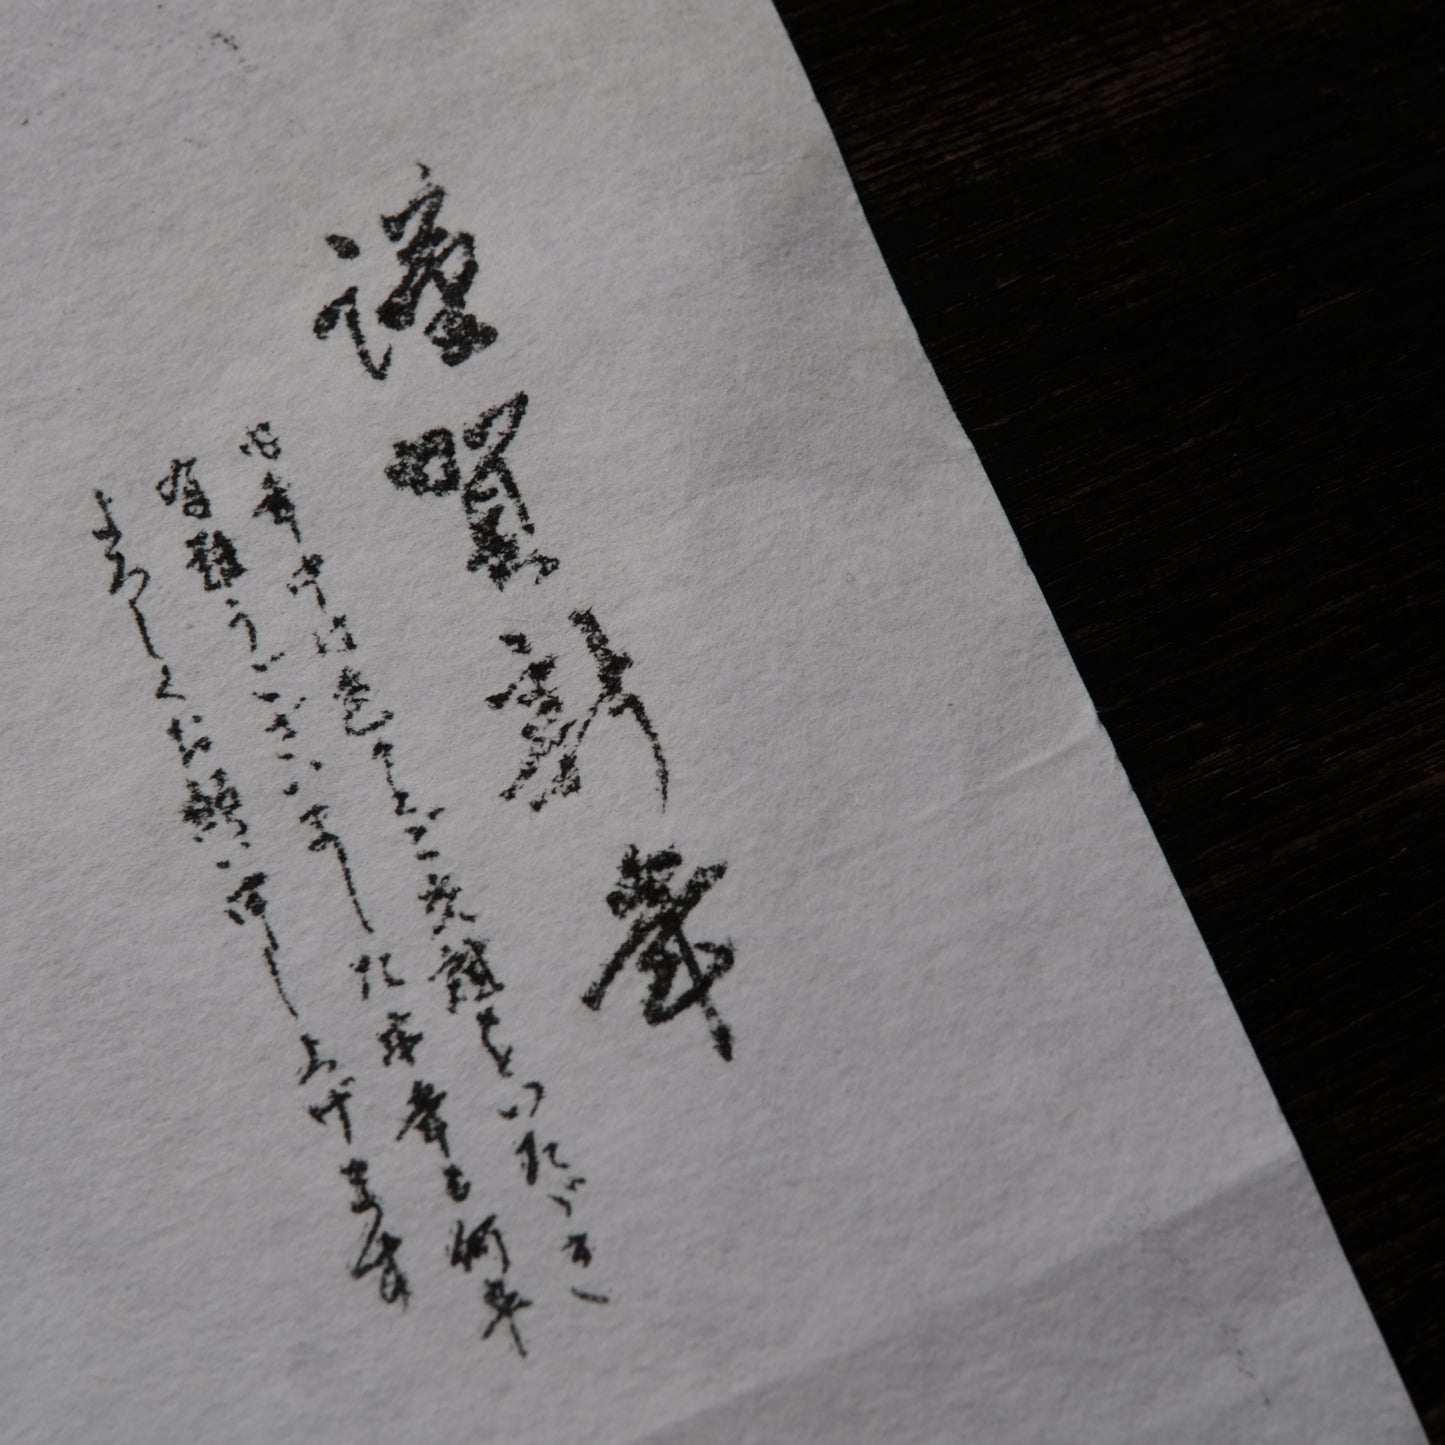 謹賀新歳
旧年中は色々とご交誼をいただき
有難うございました本年も何卒
よろしくお願い申し上げます